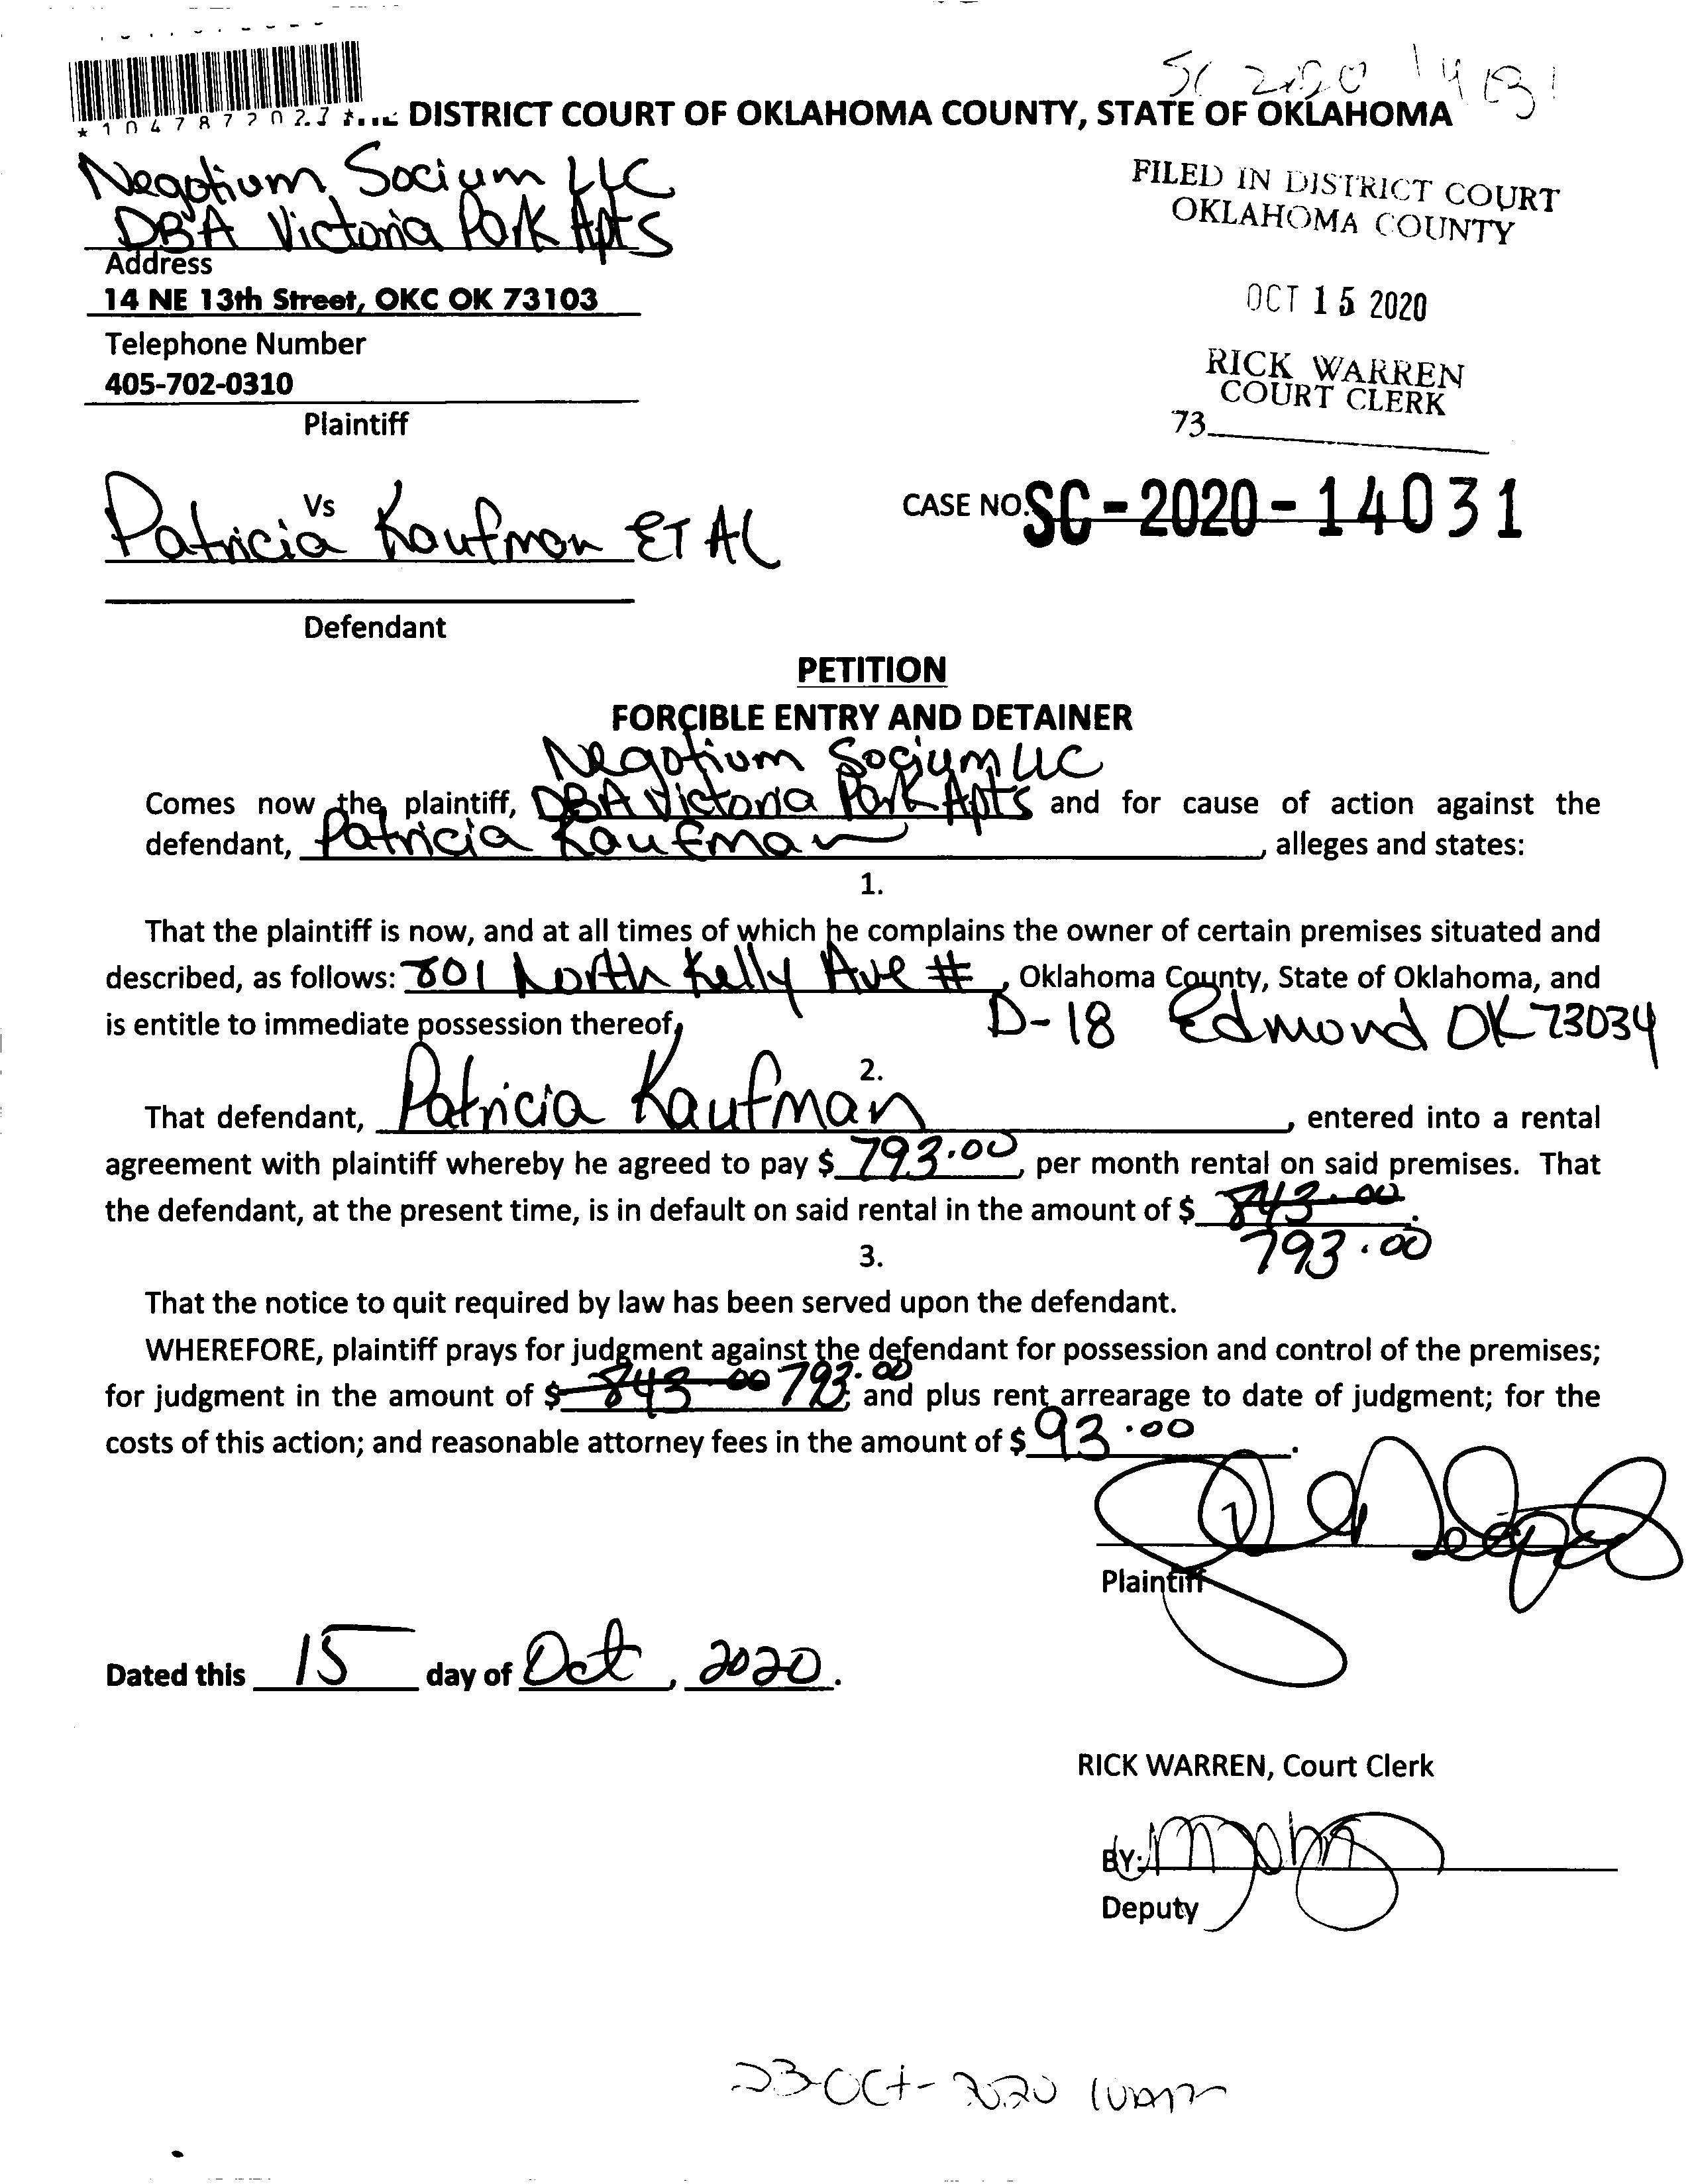 SC 2020 14031
*1047877027*
DISTRICT COURT OF OKLAHOMA COUNTY, STATE OF OKLAHOMA
Negotium Socium LLC
DBA Victoria Park Apts
Address
14 NE 13th Street, OKC OK 73103
Telephone Number
405-702-0310
Plaintiff
FILED IN DISTRICT COURT
OKLAHOMA COUNTY
OCT 15 2020
RICK WARREN
COURT CLERK
73
Vs
Patricia Kaufman ET AL
CASE NO. SC-2020-14031
Defendant
PETITION
FORCIBLE ENTRY AND DETAINER
Negotium Socium LLC
Comes now the plaintiff, DBA Victoria Park Apts and for cause of action against the
defendant, Patricia Kaufman, alleges and states:
1.
That the plaintiff is now, and at all times of which he complains the owner of certain premises situated and
described, as follows: 801 North Kelly Ave #, Oklahoma County, State of Oklahoma, and
is entitle to immediate possession thereof, D-18 Edmond OK 73034
2.
That defendant, Patricia Kaufman, entered into a rental
agreement with plaintiff whereby he agreed to pay $ 793.00, per month rental on said premises. That
the defendant, at the present time, is in default on said rental in the amount of $ 843.00.
793.00
3.
That the notice to quit required by law has been served upon the defendant.
WHEREFORE, plaintiff prays for judgment against the defendant for possession and control of the premises;
for judgment in the amount of $ 843.00 793.00; and plus rent arrearage to date of judgment; for the
costs of this action; and reasonable attorney fees in the amount of $ 93.00.
Plaintiff
Dated this 15 day of Oct, 2020.
RICK WARREN, Court Clerk
BY:
Deputy
23-Oct-2020